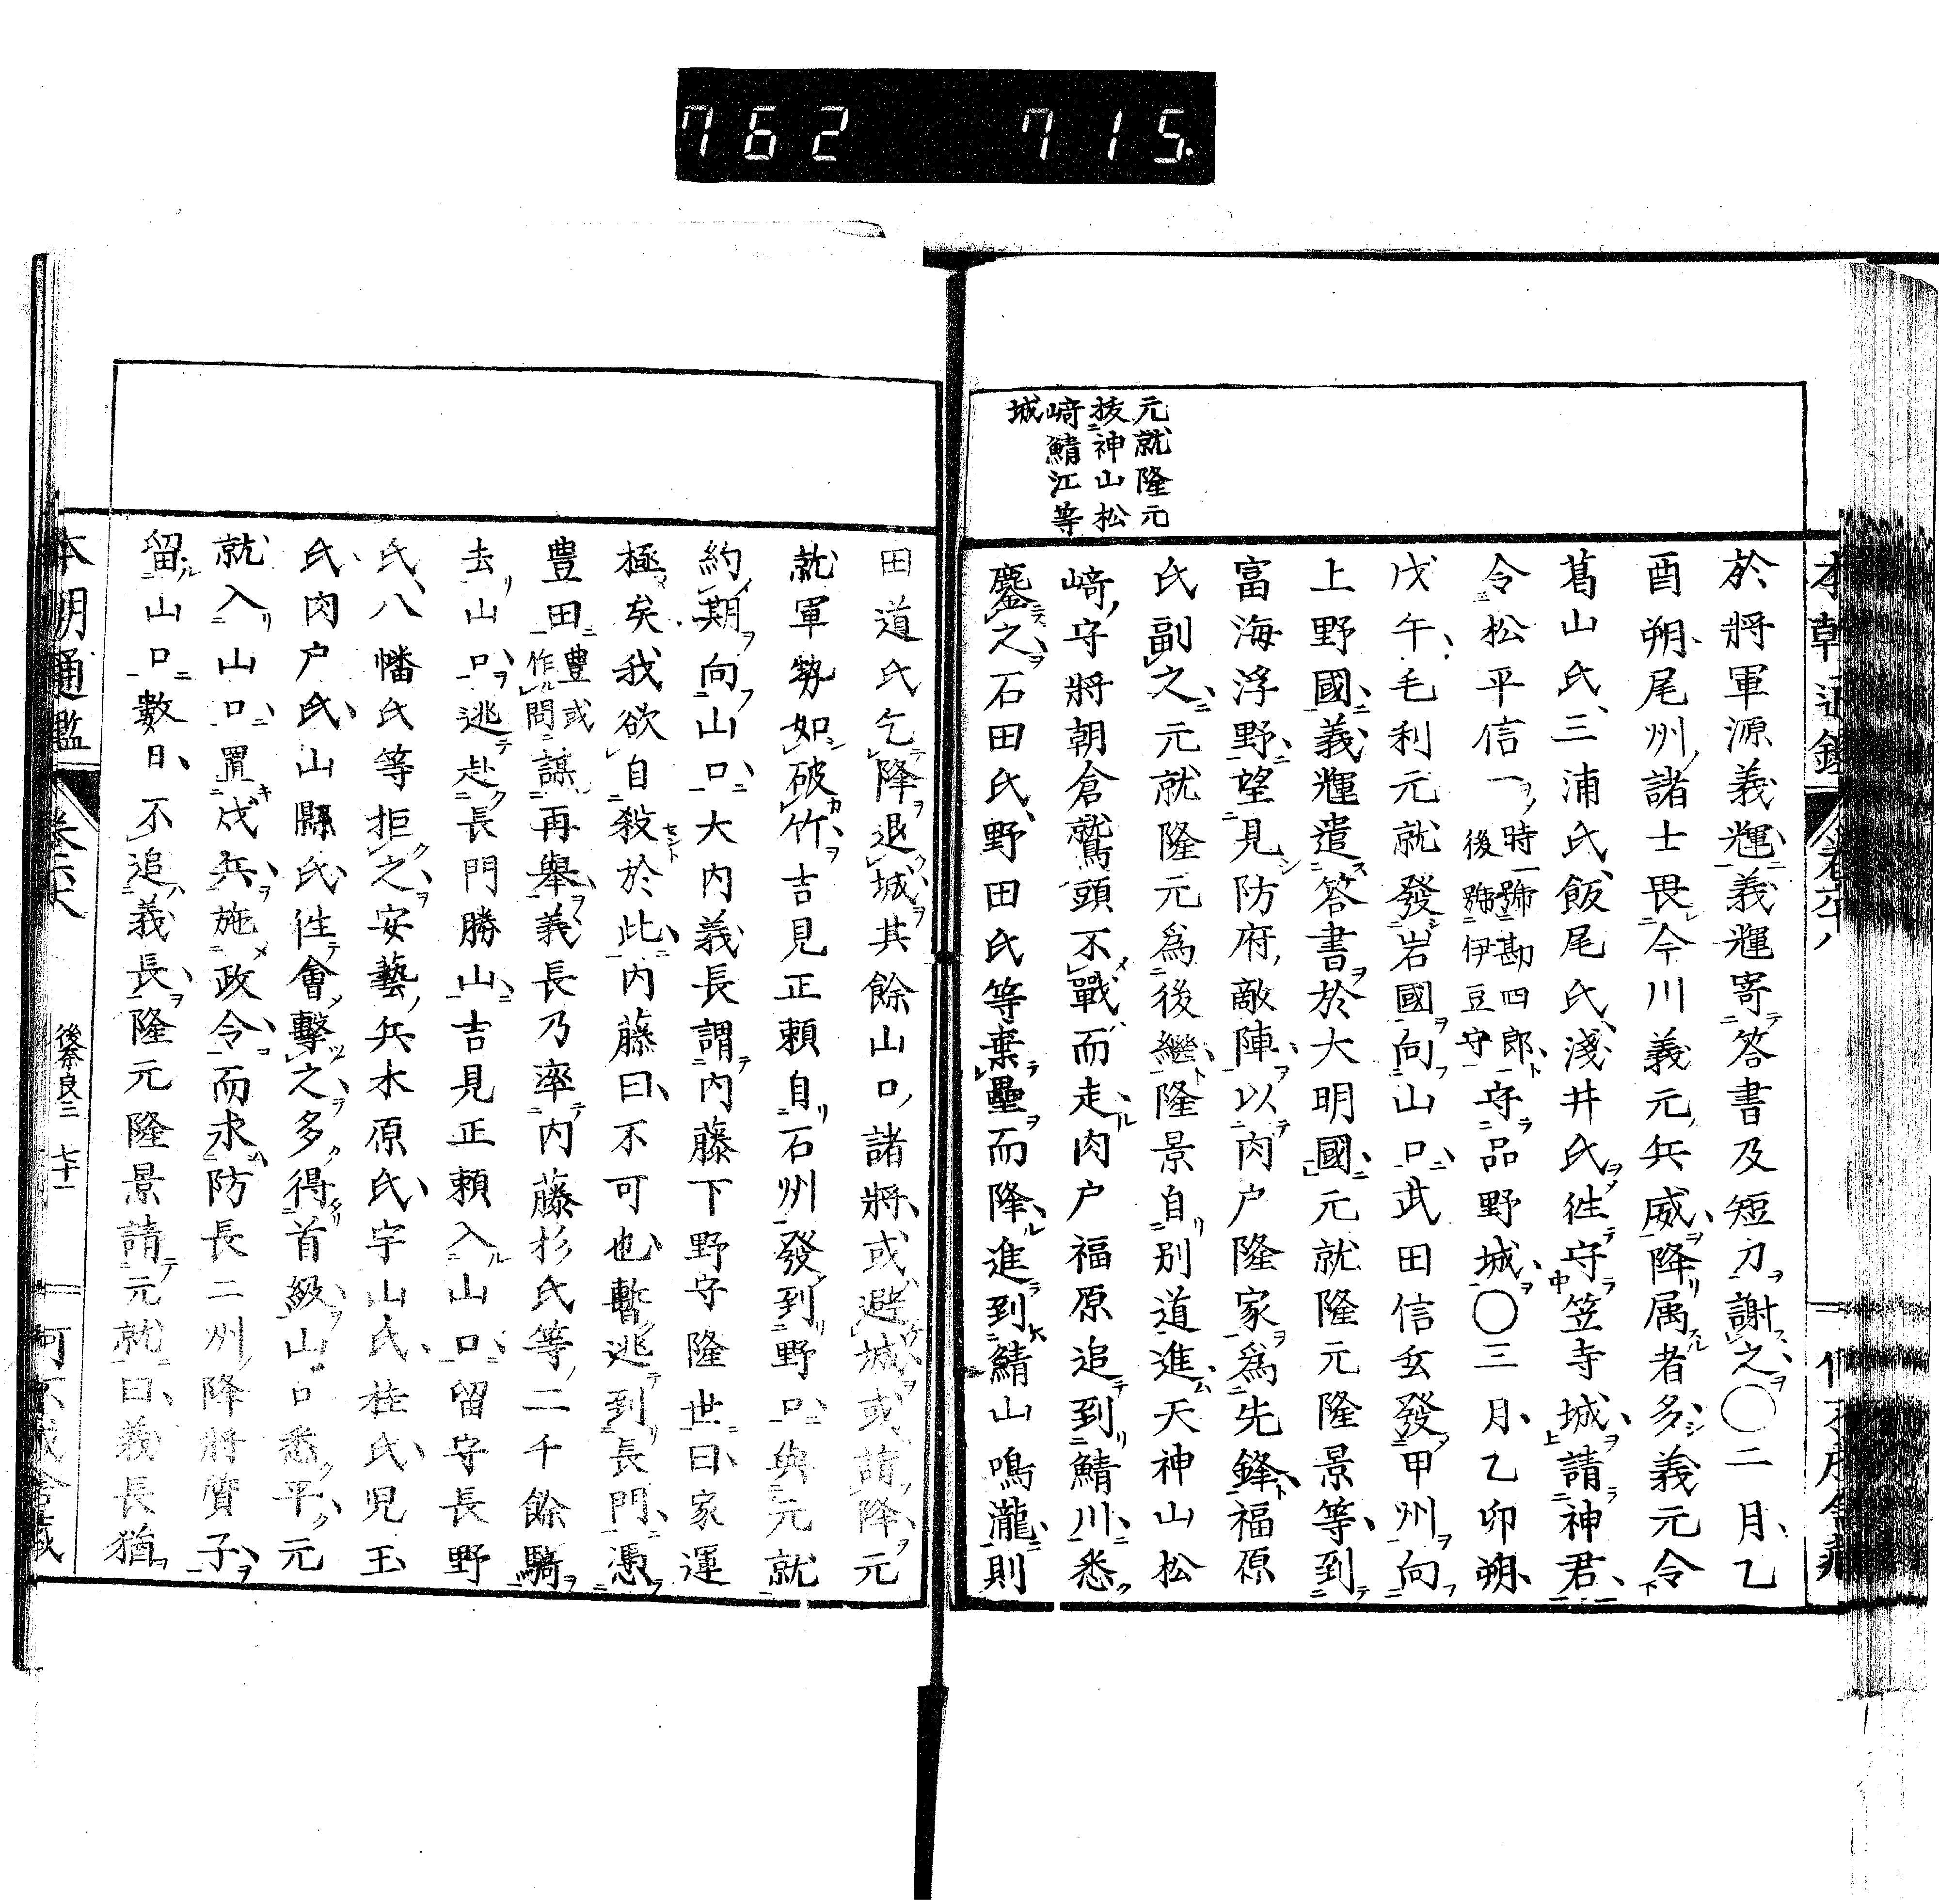 762 715.
元就隆元
抜神山松
﨑鯖江等
城
於將軍源義輝義輝寄答書及短刀謝之〇二月乙
酉朔尾州諸士畏今川義元兵威降属者多義元令
葛山氏三浦氏飯尾氏淺井氏往守笠寺城請神君
令松平信一時一號勘四郎後號伊豆守守品野城〇三月乙卯朔
戊午毛利元就發岩國向山口武田信玄發甲州向
上野國義輝遣答書於大明國元就隆元隆景等到
富海浮野望見防府敵陣以肉户隆家爲先鋒福原
氏副之元就隆元爲後繼隆景自別道進天神山松
﨑守將朝倉鷲頭不戰而走肉户福原追到鯖川悉
鏖之石田氏野田氏等棄壘而降進到鯖山鳴瀧則
田道氏乞降退城其餘山口諸將或避城或請降元
就軍勢如破竹吉見正頼自石州發到野口與元就
約期向山口大内義長謂内藤下野守隆世曰家運
極矣我欲自殺於此内藤曰不可也暫逃到長門憑
豊田豊或作問謀再舉義長乃率内藤杉氏等二千餘騎
去山口逃赴長門勝山吉見正頼入山口留守長野
氏八幡氏等拒之安藝兵木原氏宇山氏桂氏児玉
氏肉户氏山縣氏往會擊之多得首級山口悉平元
就入山口置戍兵施政令而求防長二州降將質子
留山口數日不追義長隆元隆景請元就曰義長猶
本朝通鑑 卷六十八 後奈良三 七十一